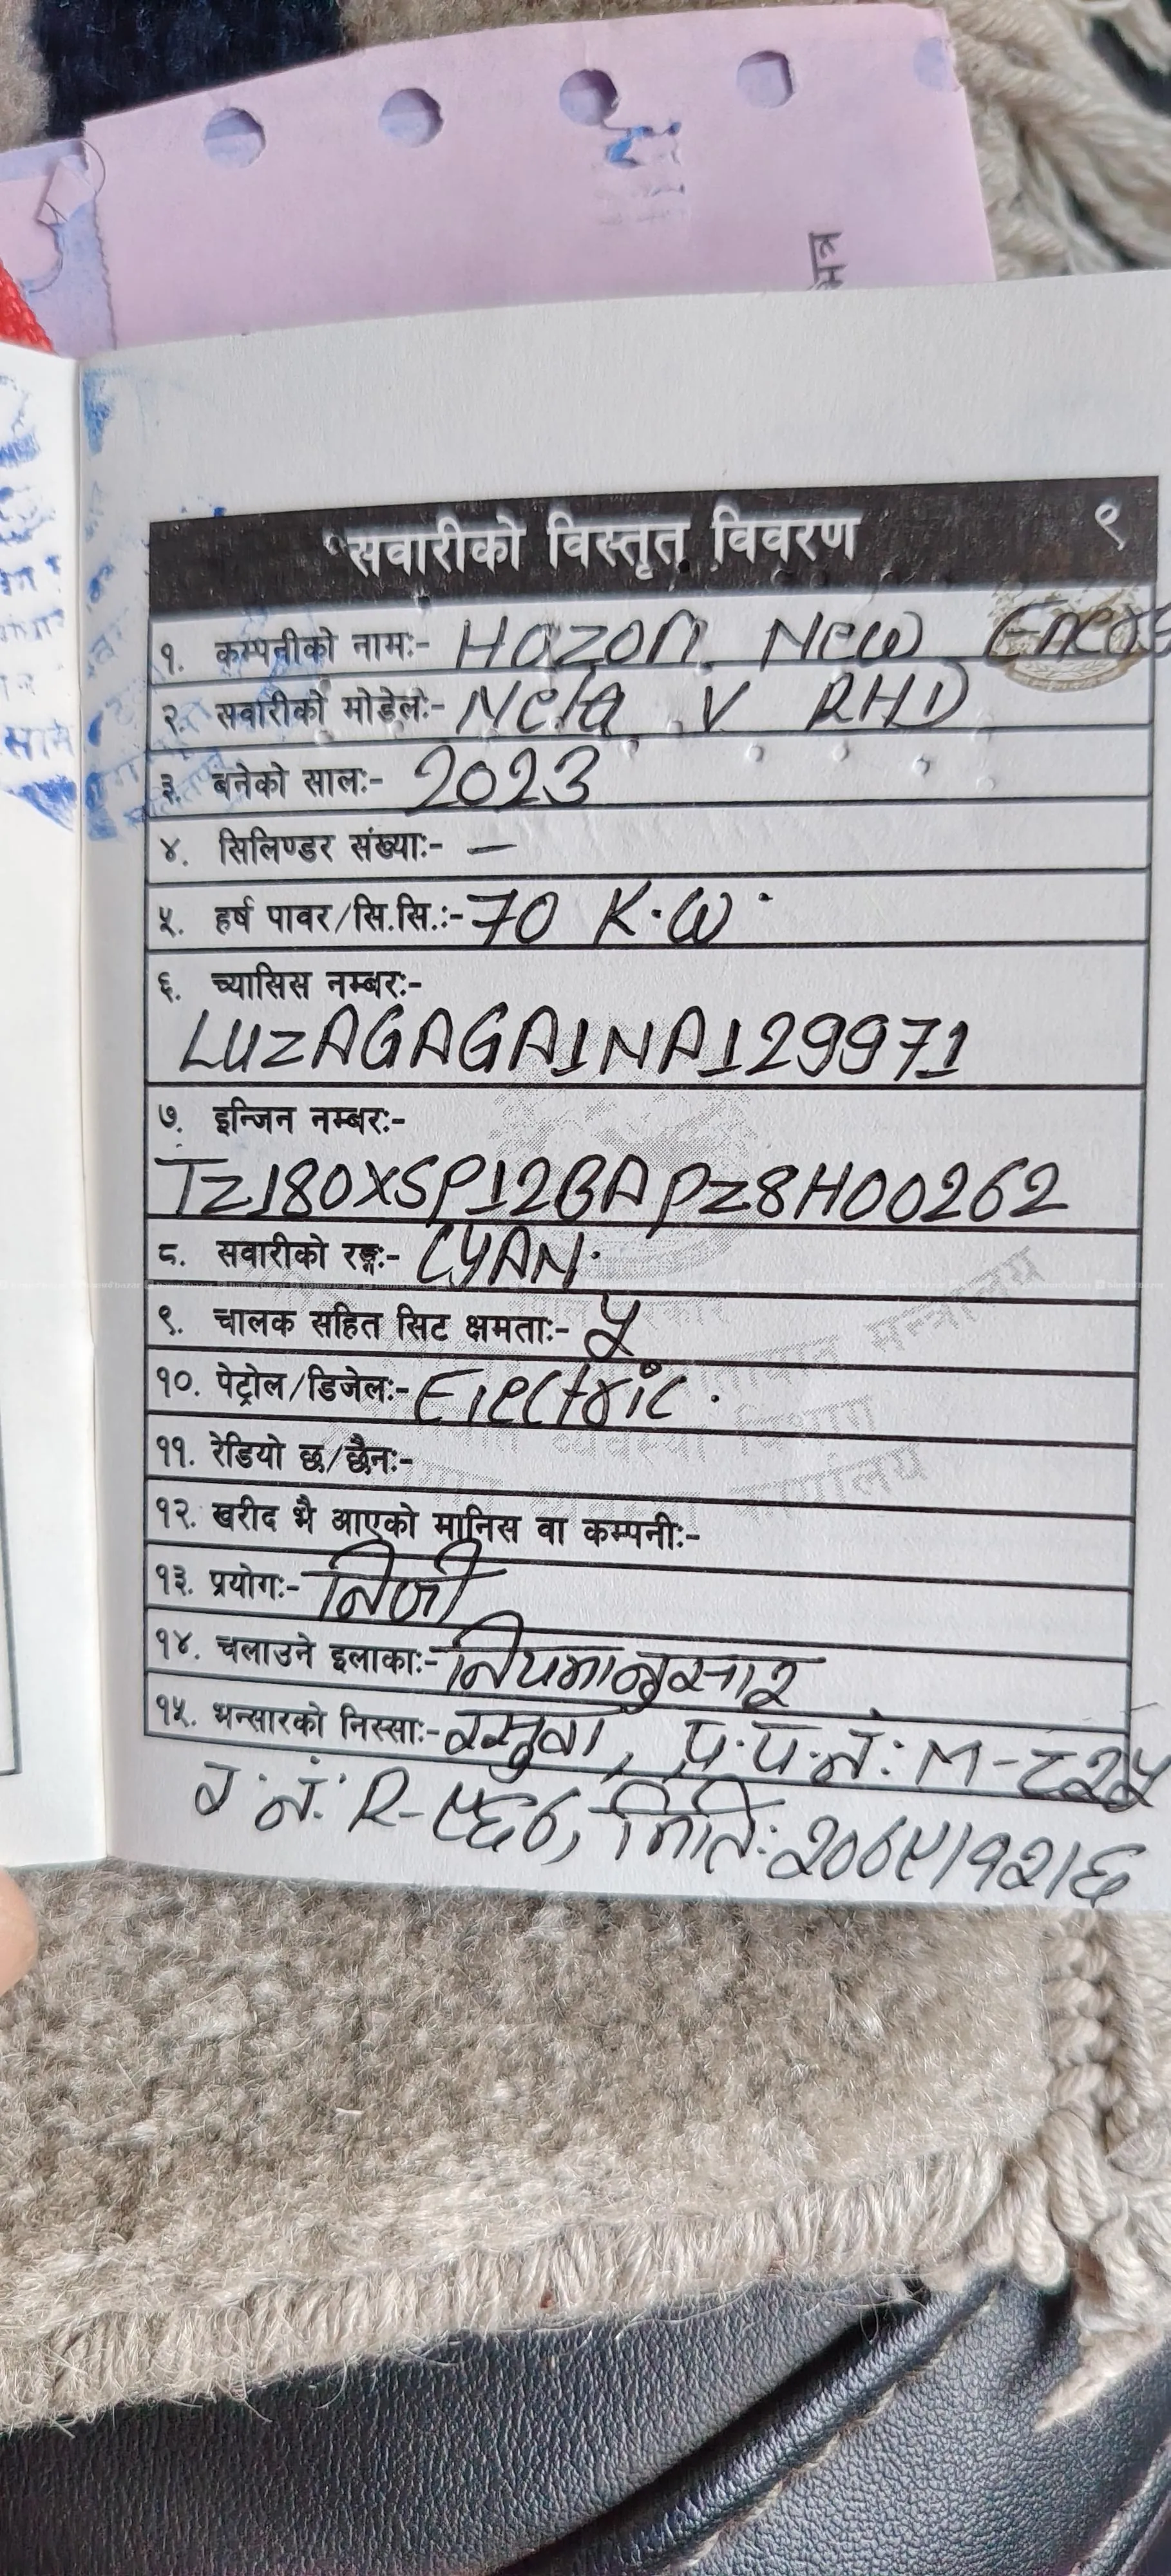 सवारीको विस्तृत विवरण ९
१. कम्पनीको नामः- Hozon New Energ
२. सवारीको मोडेलः- Neta V RHD
३. बनेको सालः- 2023
४. सिलिण्डर संख्याः- —
५. हर्ष पावर/सि.सि.ः- 70 K.W.
६. च्यासिस नम्बरः-
LUZAGAGA1NA129971
७. इन्जिन नम्बरः-
TZ180XSP12BAPZ8H00262
८. सवारीको रङ्गः- CYAN.
९. चालक सहित सिट क्षमताः- ५
१०. पेट्रोल/डिजेलः- Electric.
११. रेडियो छ/छैनः-
१२. खरीद भै आएको मानिस वा कम्पनीः-
१३. प्रयोगः- निजी
१४. चलाउने इलाकाः- नियमानुसार
१५. भन्सारको निस्साः- रसुवा, प्र.प.नं: M-८२५
र.नं: R-९६८, मिति: २०७९/१२/६